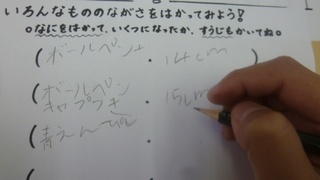 いろんなもののながさをはかってみよう!
○なにをはかって、いくつになったか、すうじもかいてね○
(ボールペン ・ 14cm )
(ボールペン ・ 15cm
キャップつき
(青えんぴつ ・